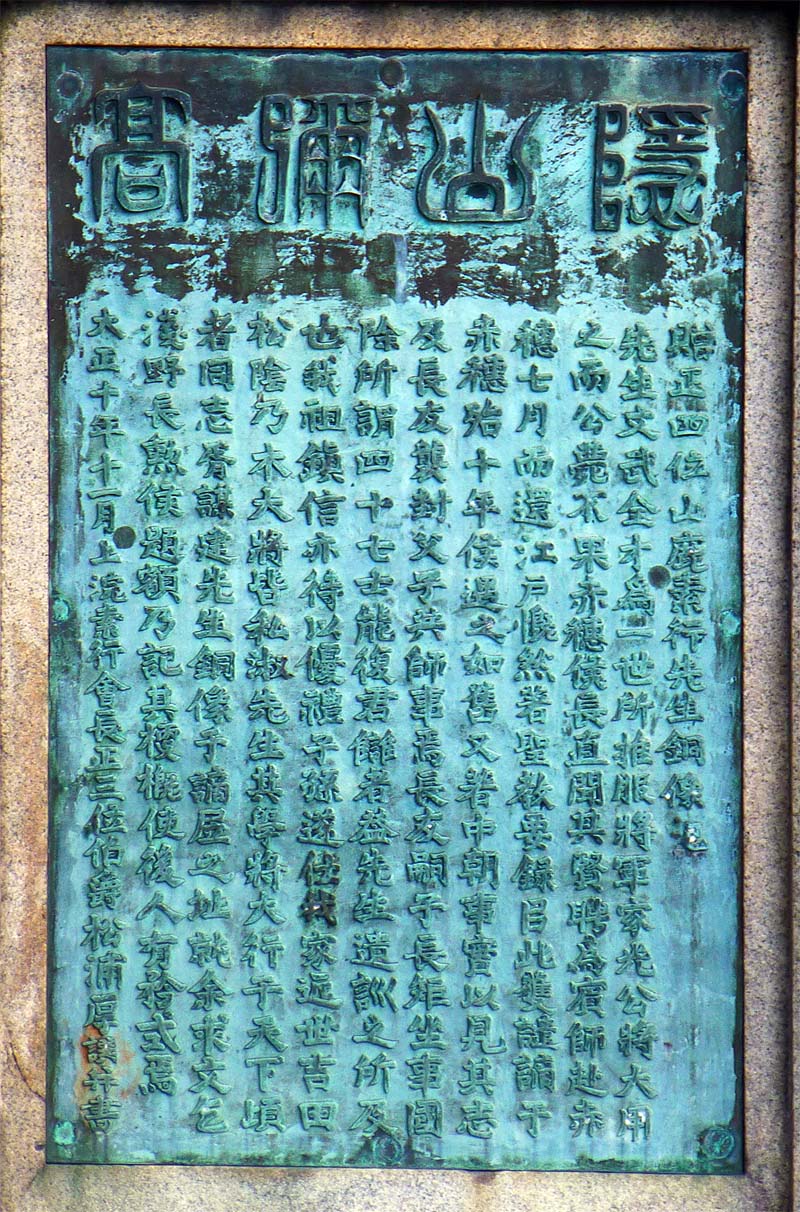 隠山彌高
贈正四位山鹿素行先生銅像記
先生文武全才為一世所推服將軍家光公將大用
之而公薨不果赤穂侯長直聞其賢聘為賓師赴赤
穂七月而還江戸慨然著聖教要録目此獲譴謫于
赤穂殆十年侯遇之如舊又著中朝事實以見其志
及長友襲封父子共師事焉長友嗣子長矩坐事國
除所謂四十七士能復君讎者益先生遺訓之所及
也我祖鎮信亦待以優禮子孫遂仕我家近世吉田
松陰乃木大將皆私淑先生其學將大行于天下頃
者同志胥謀建先生銅像于謫居之址就余求文乞
淺野長勲侯題額乃記其梗概使後人有矜式焉
大正十年十一月上浣素行會長正三位伯爵松浦厚譔并書